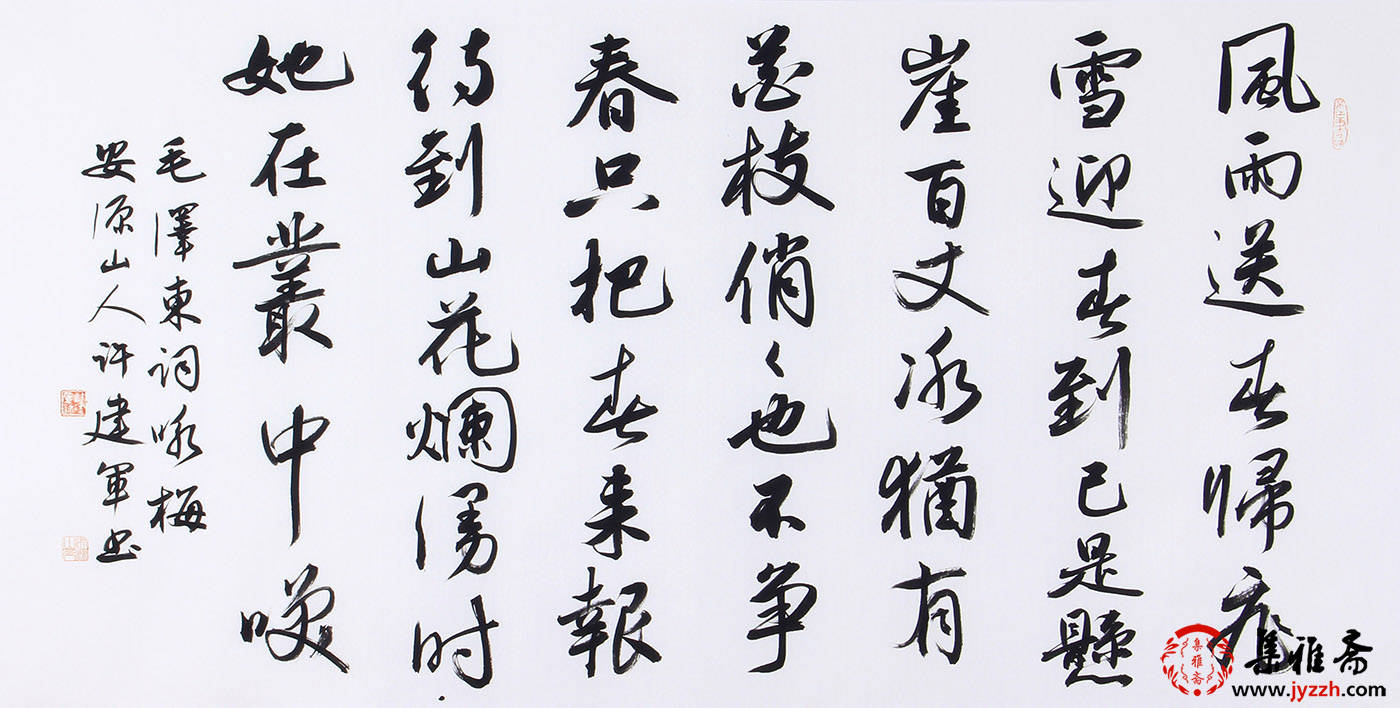 風雨送春歸飛
雪迎春到已是懸
崖百丈冰猶有
花枝俏〻也不争
春只把春来報
待到山花爛漫时
她在叢中咲
毛澤東词咏梅
安源山人许建軍书
集雅斋
集雅斋
www.jyzzh.com